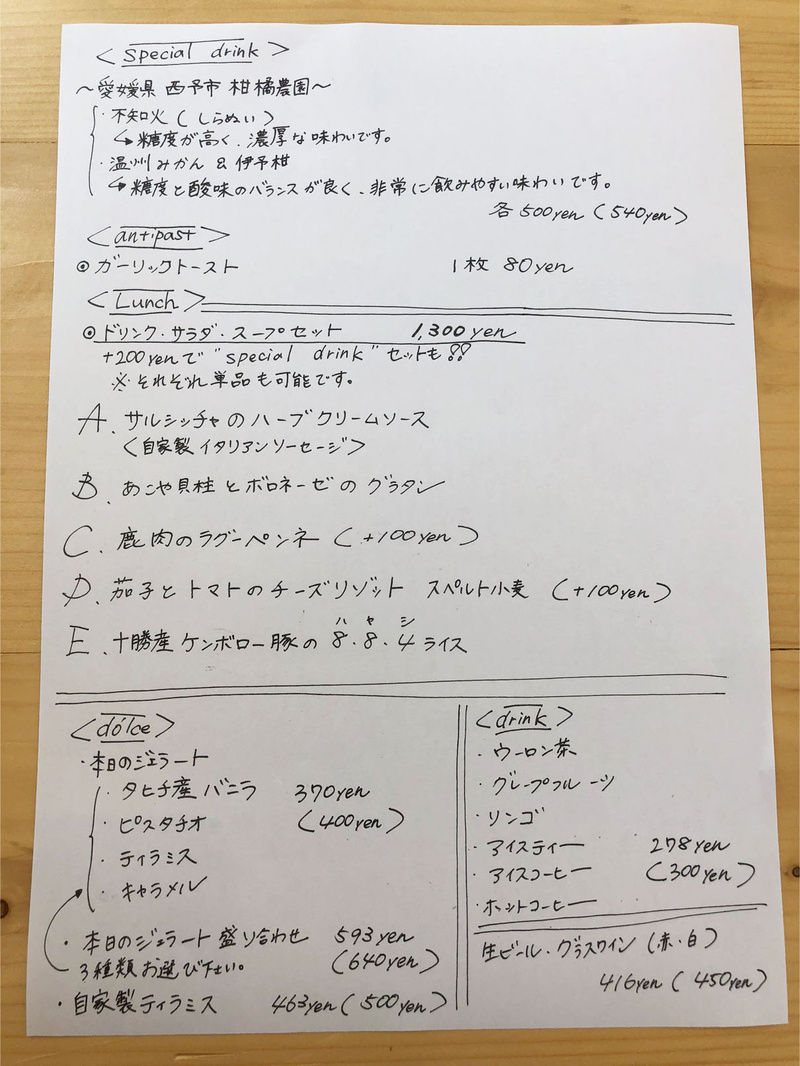 <special drink>
～愛媛県 西予市 柑橘農園～
・不知火 (しらぬい)
↳糖度が高く、濃厚な味わいです。
・温州みかん & 伊予柑
↳糖度と酸味のバランスが良く、非常に飲みやすい味わいです。
各 500yen (540yen)
<antipast>
◉ ガーリックトースト 1枚 80yen
<Lunch>
◉ ドリンク・サラダ・スープセット 1,300yen
+200yenで "special drink" セットも!!
※それぞれ単品も可能です。
A. サルシッチャのハーブクリームソース
<自家製イタリアンソーセージ>
B. あこや貝柱とボロネーゼのグラタン
C. 鹿肉のラグーペンネ (+100yen)
D. 茄子とトマトのチーズリゾット スペルト小麦 (+100yen)
ハ ヤ シ
E. 十勝産ケンボロー豚の 8・8・4 ライス
<dólce>
・本日のジェラート
・タヒチ産バニラ 370yen
・ピスタチオ (400yen)
・ティラミス
・キャラメル
・本日のジェラート盛り合わせ 593yen
3種類お選び下さい。 (640yen)
・自家製ティラミス 463yen (500yen)
<drink>
・ウーロン茶
・グレープフルーツ
・リンゴ
・アイスティー 278yen
・アイスコーヒー (300yen)
・ホットコーヒー
生ビール・グラスワイン (赤・白)
416yen (450yen)